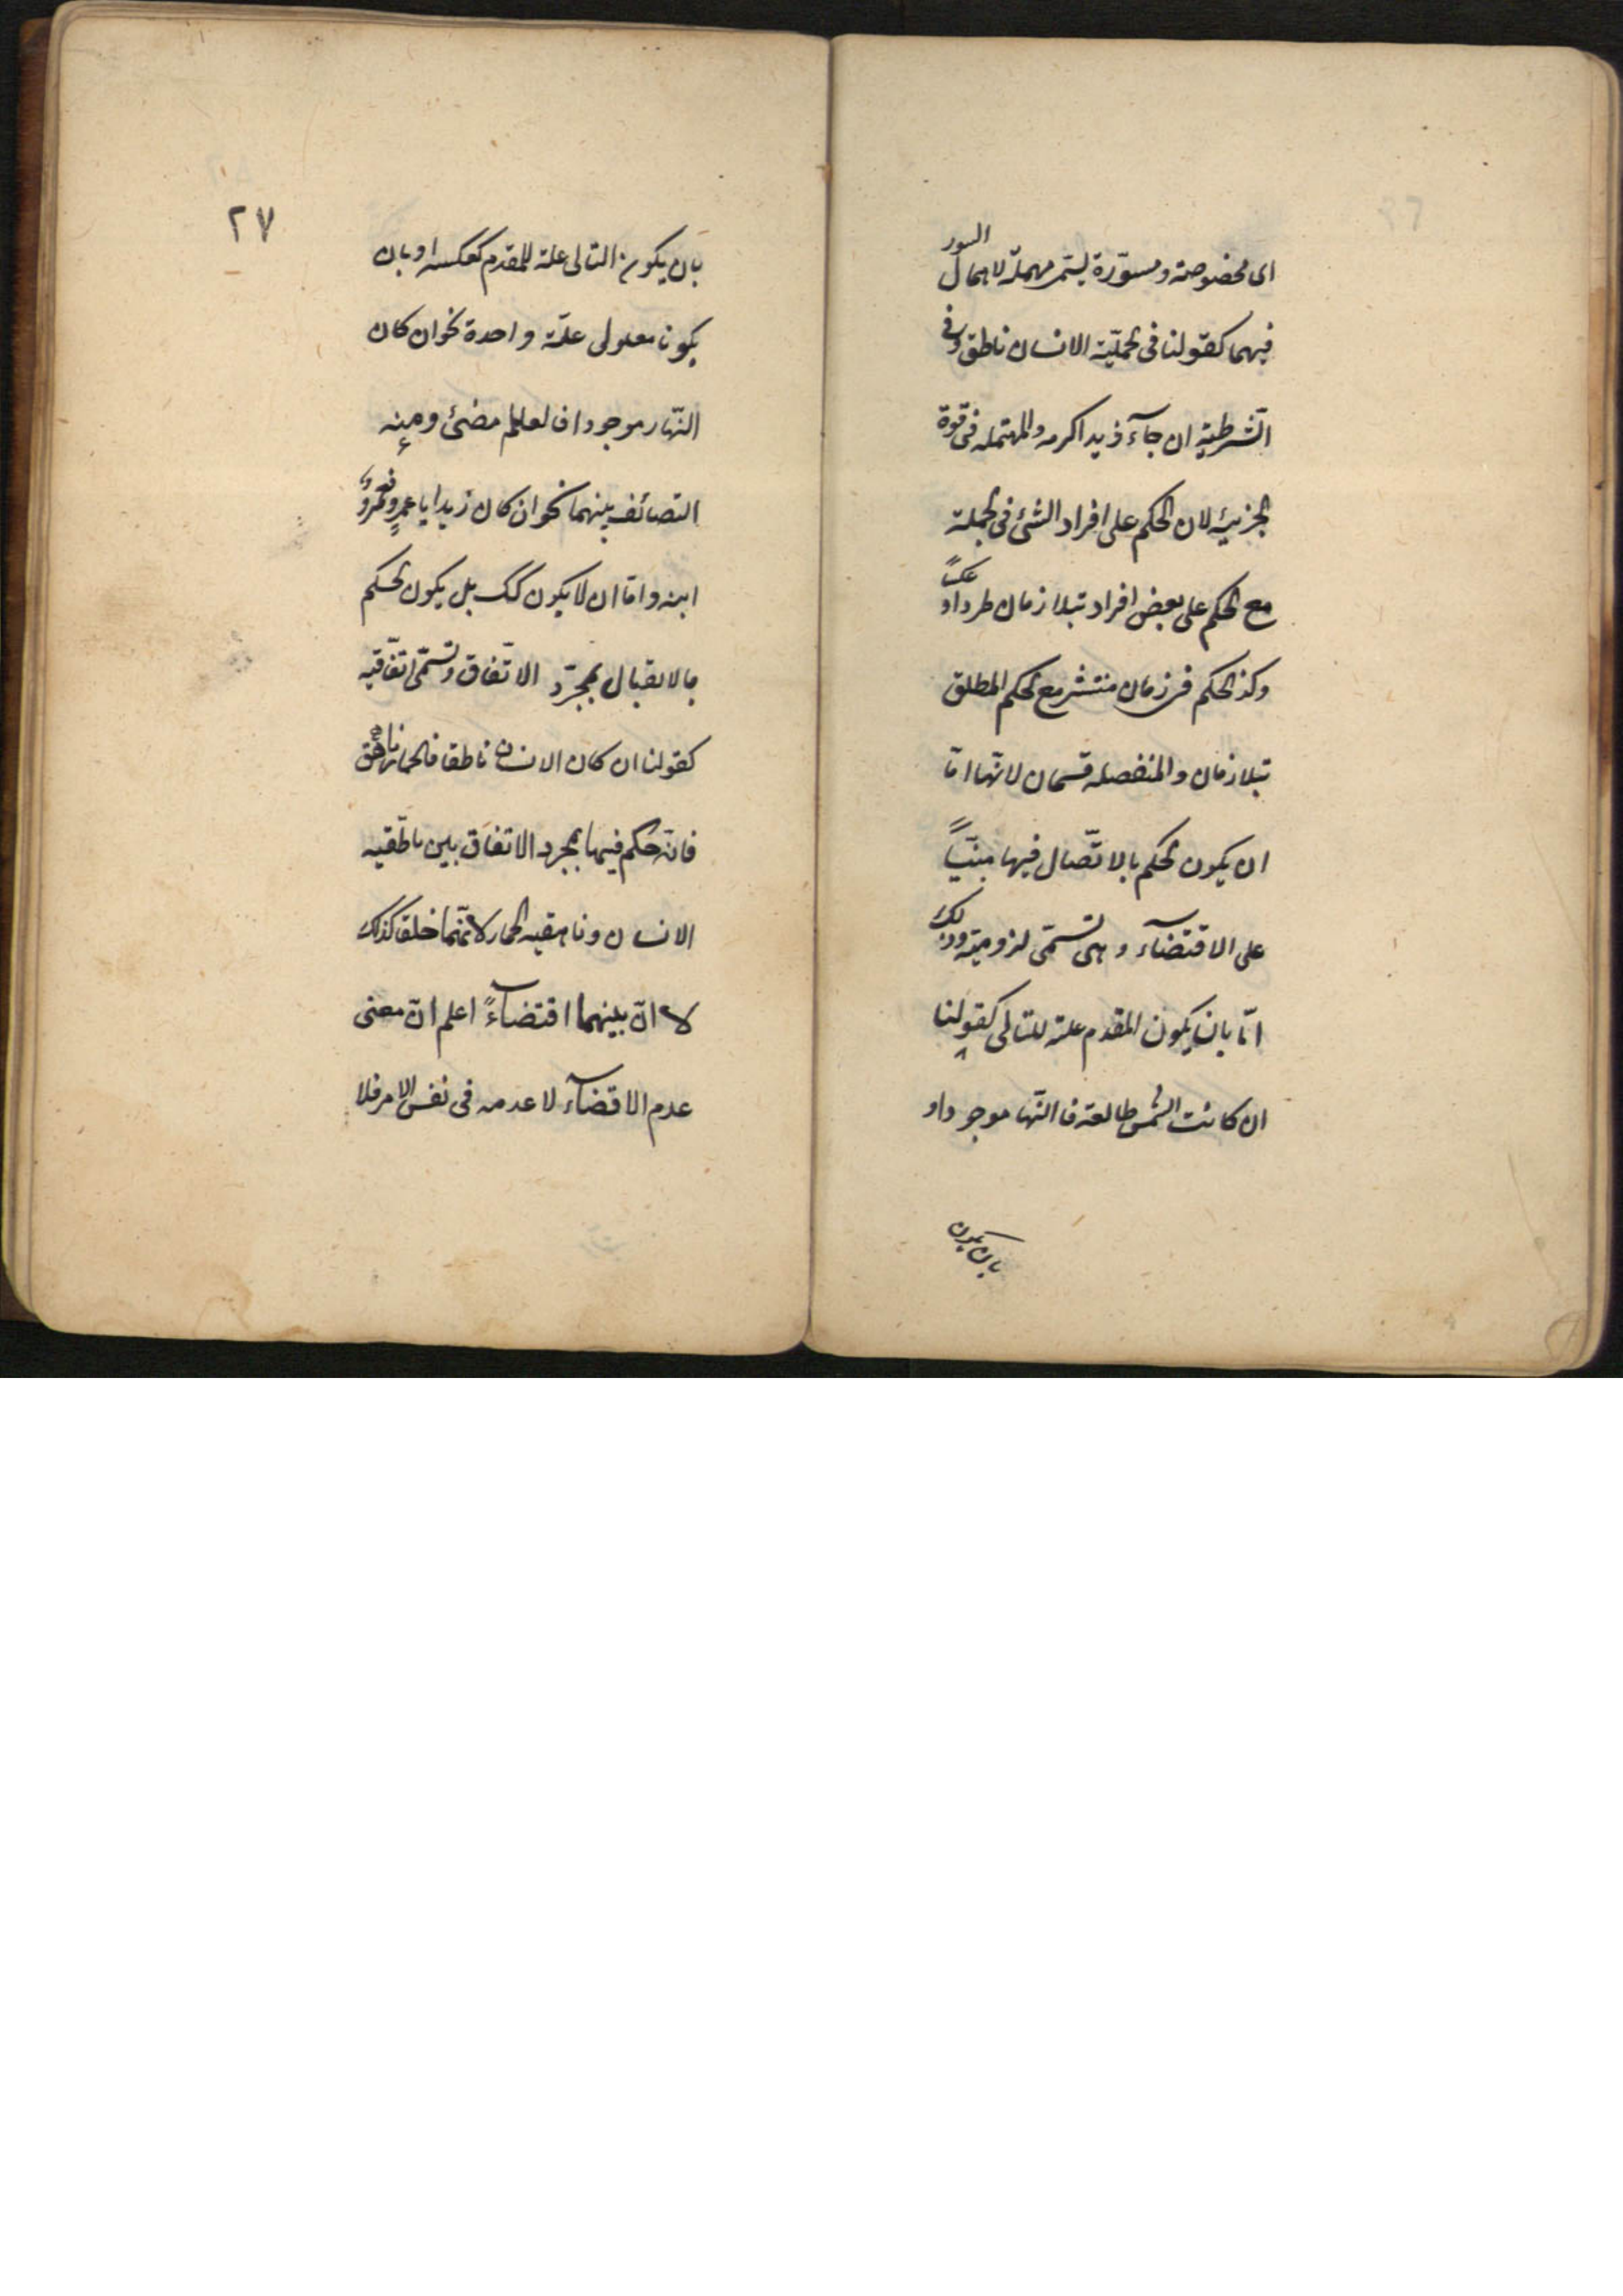 اى مخصوصة ومسوّرة يسمّى مهملة لاهمال السور
فيهما كقولنا فى الحمليّة الانسان ناطق وفى
الشرطية ان جآء زيد اكرمه والمهملة فى قوّة
الجزئية لان الحكم على افراد الشئ فى الجملة
مع الحكم على بعض افراد تبلازمان طردا و عكسًا
وكذ الحكم فى زمان منتشر مع الحكم المطلق
تبلازمان والمنفصلة قسمان لانّها امّا
ان يكون الحكم بالاتّصال فيها مبنيّاً
على الاقتضآء وهى تسمّى لزومية وذلك
امّا بان يكون المقدم علة للتالى كقولنا
ان كانت الشمس طالعة فا النّها موجود او
بان يكون
٢٧
بان يكون التالى علة للمقدم كعكسه او بان
يكونا معلولى علّة واحدة نحو ان كان
النّهار موجودا فالعالم مضئ ومنه
التصائف بينهما نحو ان كان زيد ابا عمرٍو فعمرٌو
ابنه وامّا ان لا يكون كك بل يكون الحكم
بالاتصال بمجرّد الاتّفاق وتسمّى اتّفاقية
كقولنا ان كان الانسان ناطقا فالحمار ناهق
فانّه حكم فيها بمجرد الاتفاق بين ناطّقية
الانسان وناهقية الحمار لانّهما خلقا كذلك
لا انّ بينهما اقتضآءً اعلم انّ معنى
عدم الاقضآء لا عدمه فى نفس الامر فلا